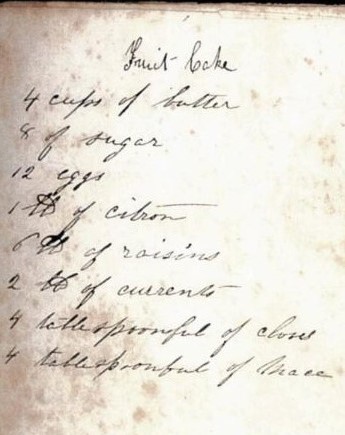 Fruit Cake
4 cups of butter
8 of sugar
12 eggs
1 ℔ of citron
6 ℔ of raisins
2 ℔ of currents
4 tablespoonful of clove
4 tablespoonful of Mace